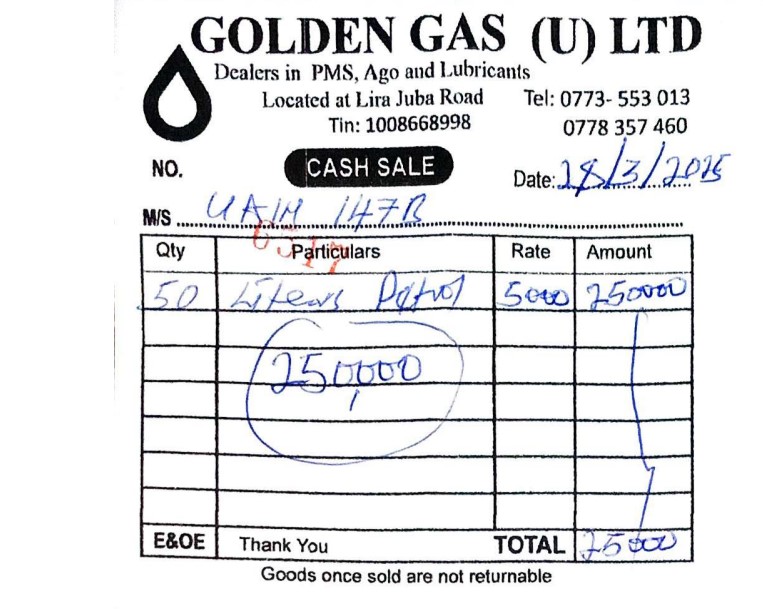 GOLDEN GAS (U) LTD
Dealers in PMS, Ago and Lubricants
Located at Lira Juba Road Tel: 0773- 553 013
Tin: 1008668998 0778 357 460
NO. CASH SALE Date: 28/3/2025
M/S 147B
6517
Qty Particulars Rate Amount
50 Liters Petrol 5000 250000
250,000
E&OE Thank You TOTAL 25000
Goods once sold are not returnable